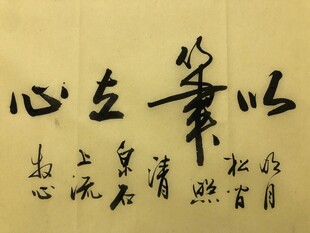 以筆立心
明月
松间
照
清
泉石
上流
牧心